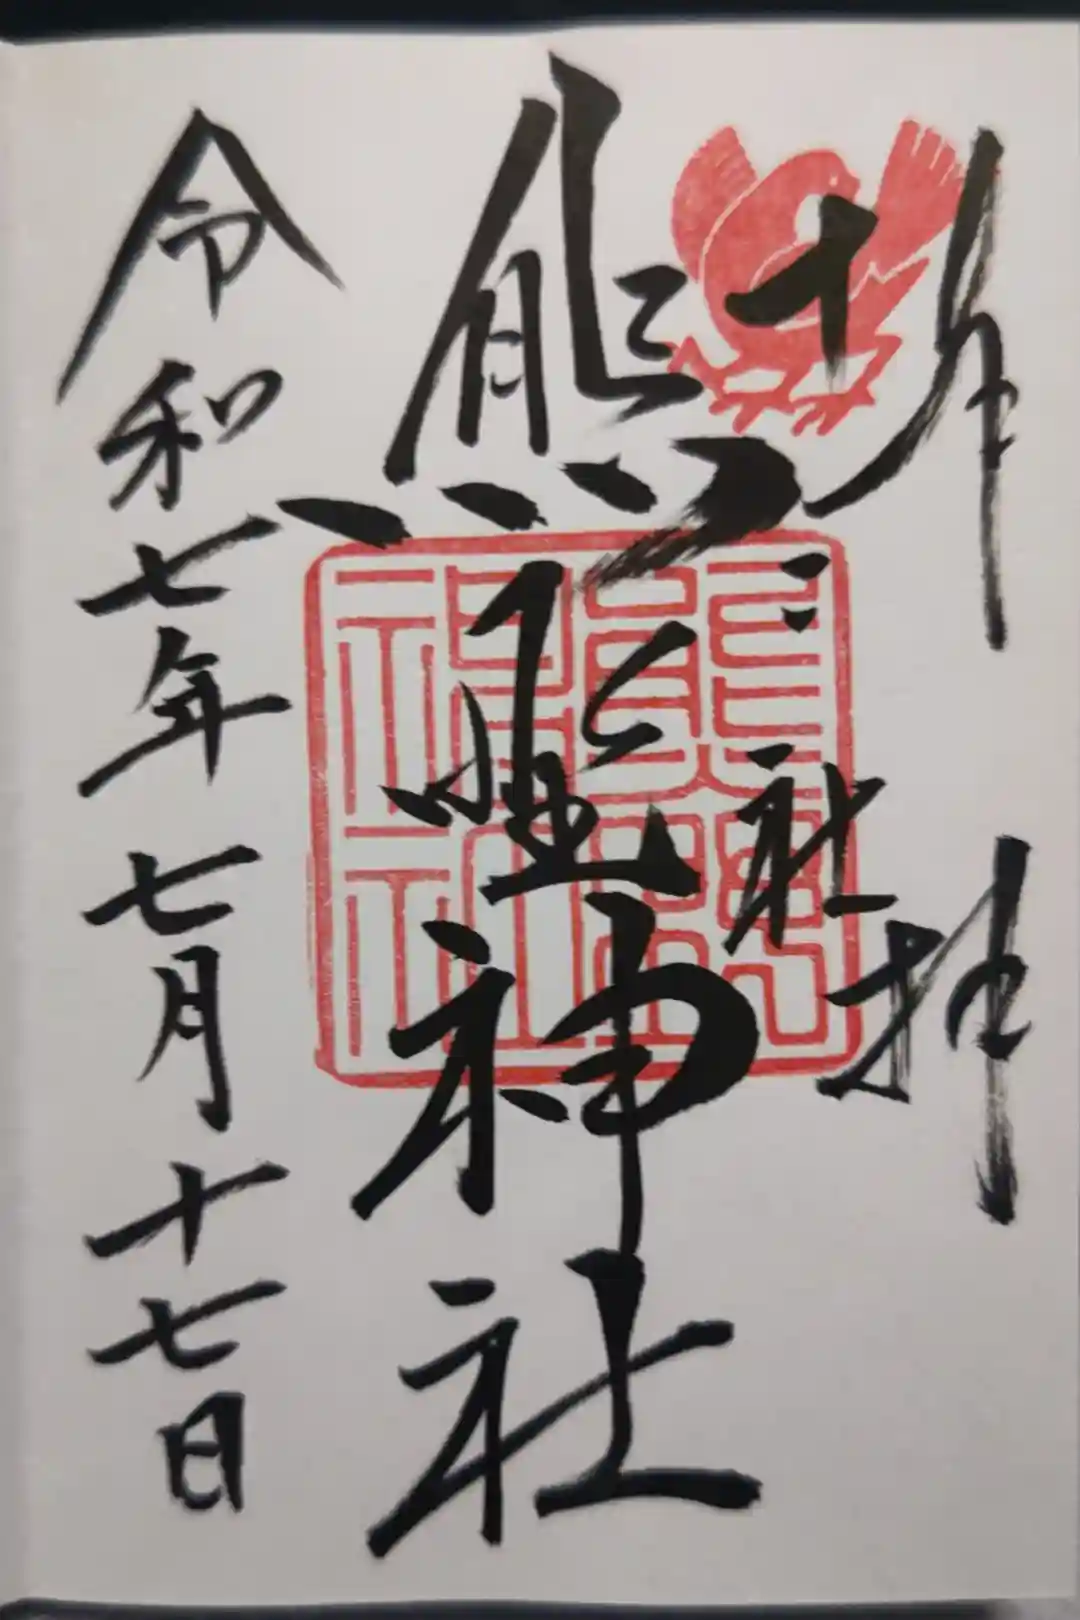 奉拝
十二社
熊野神社
令和七年七月十七日